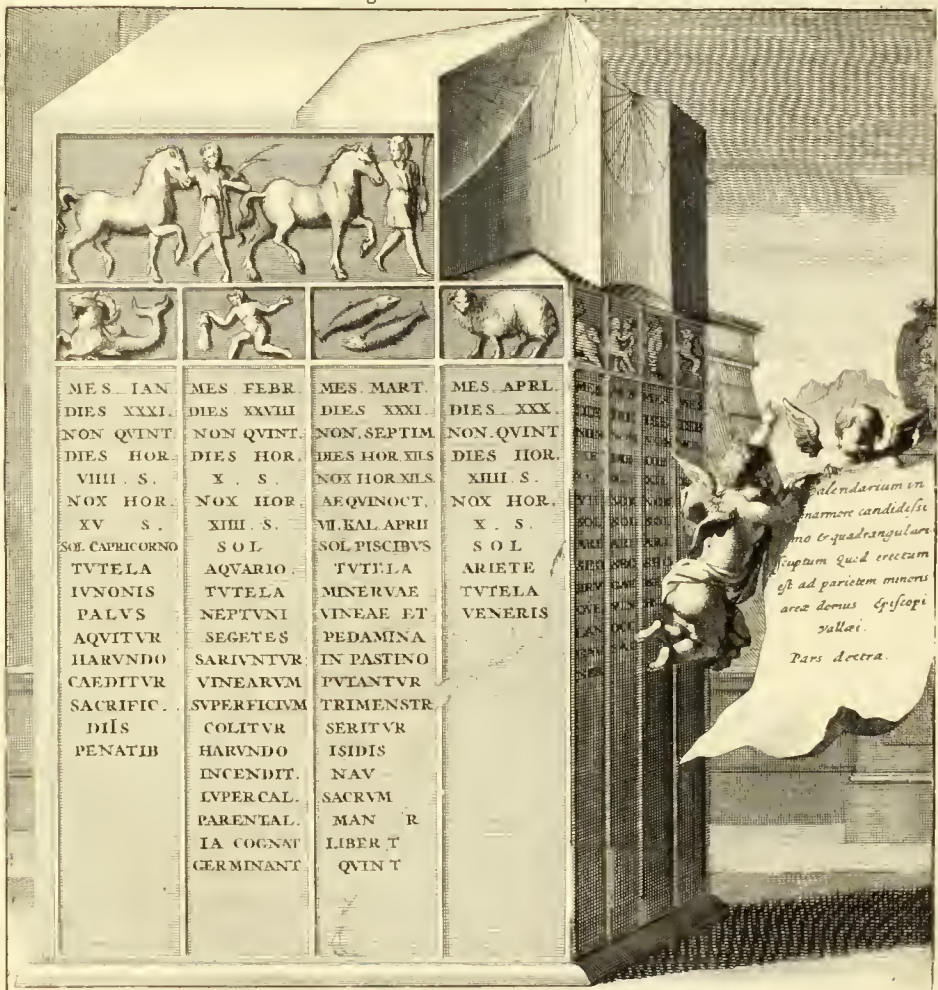 MES IAN
DIES XXXI.
NON QVINT.
DIES HOR.
VIIII . S.
NOX HOR.
XV S.
SOL CAPRICORNO
TVTELA
IVNONIS
PALVS
AQVITVR
HARVNDO
CAEDITVR
SACRIFIC.
DIIS
PENATIB
MES FEBR.
DIES XXVIII
NON QVINT.
DIES HOR.
X . S.
NOX HOR.
XIIII . S.
SOL
AQVARIO .
TVTELA
NEPTVNI
SEGETES
SARIVNTVR
VINEARVM
SVPERFICIVM
COLITVR
HARVNDO
INCENDIT.
LVPERCAL.
PARENTAL.
IA COGNAT
GERMINANT
MES . MART.
DIES XXXI.
NON. SEPTIM
DIES HOR XII.S
NOX HOR XII.S.
AEQVINOCT.
VI. KAL APRII
SOL PISCIBVS
TVTELA
MINERVAE
VINEAE ET
PEDAMINA
IN PASTINO
PVTANTVR
TRIMENSTR
SERITVR
ISIDIS
NAV
SACRVM
MAN R
LIBER T
QVIN T
MES . APRL.
DIES XXX.
NON. QVINT
DIES HOR.
XIIII . S.
NOX HOR.
X . S.
SOL
ARIETE
TVTELA
VENERIS
Calendarium in
marmore candidissi
mo & quadrangulari
scuptum Quod erectum
est ad parietem minoris
areæ domus Episcopi
Vallæi.
Pars dextra.